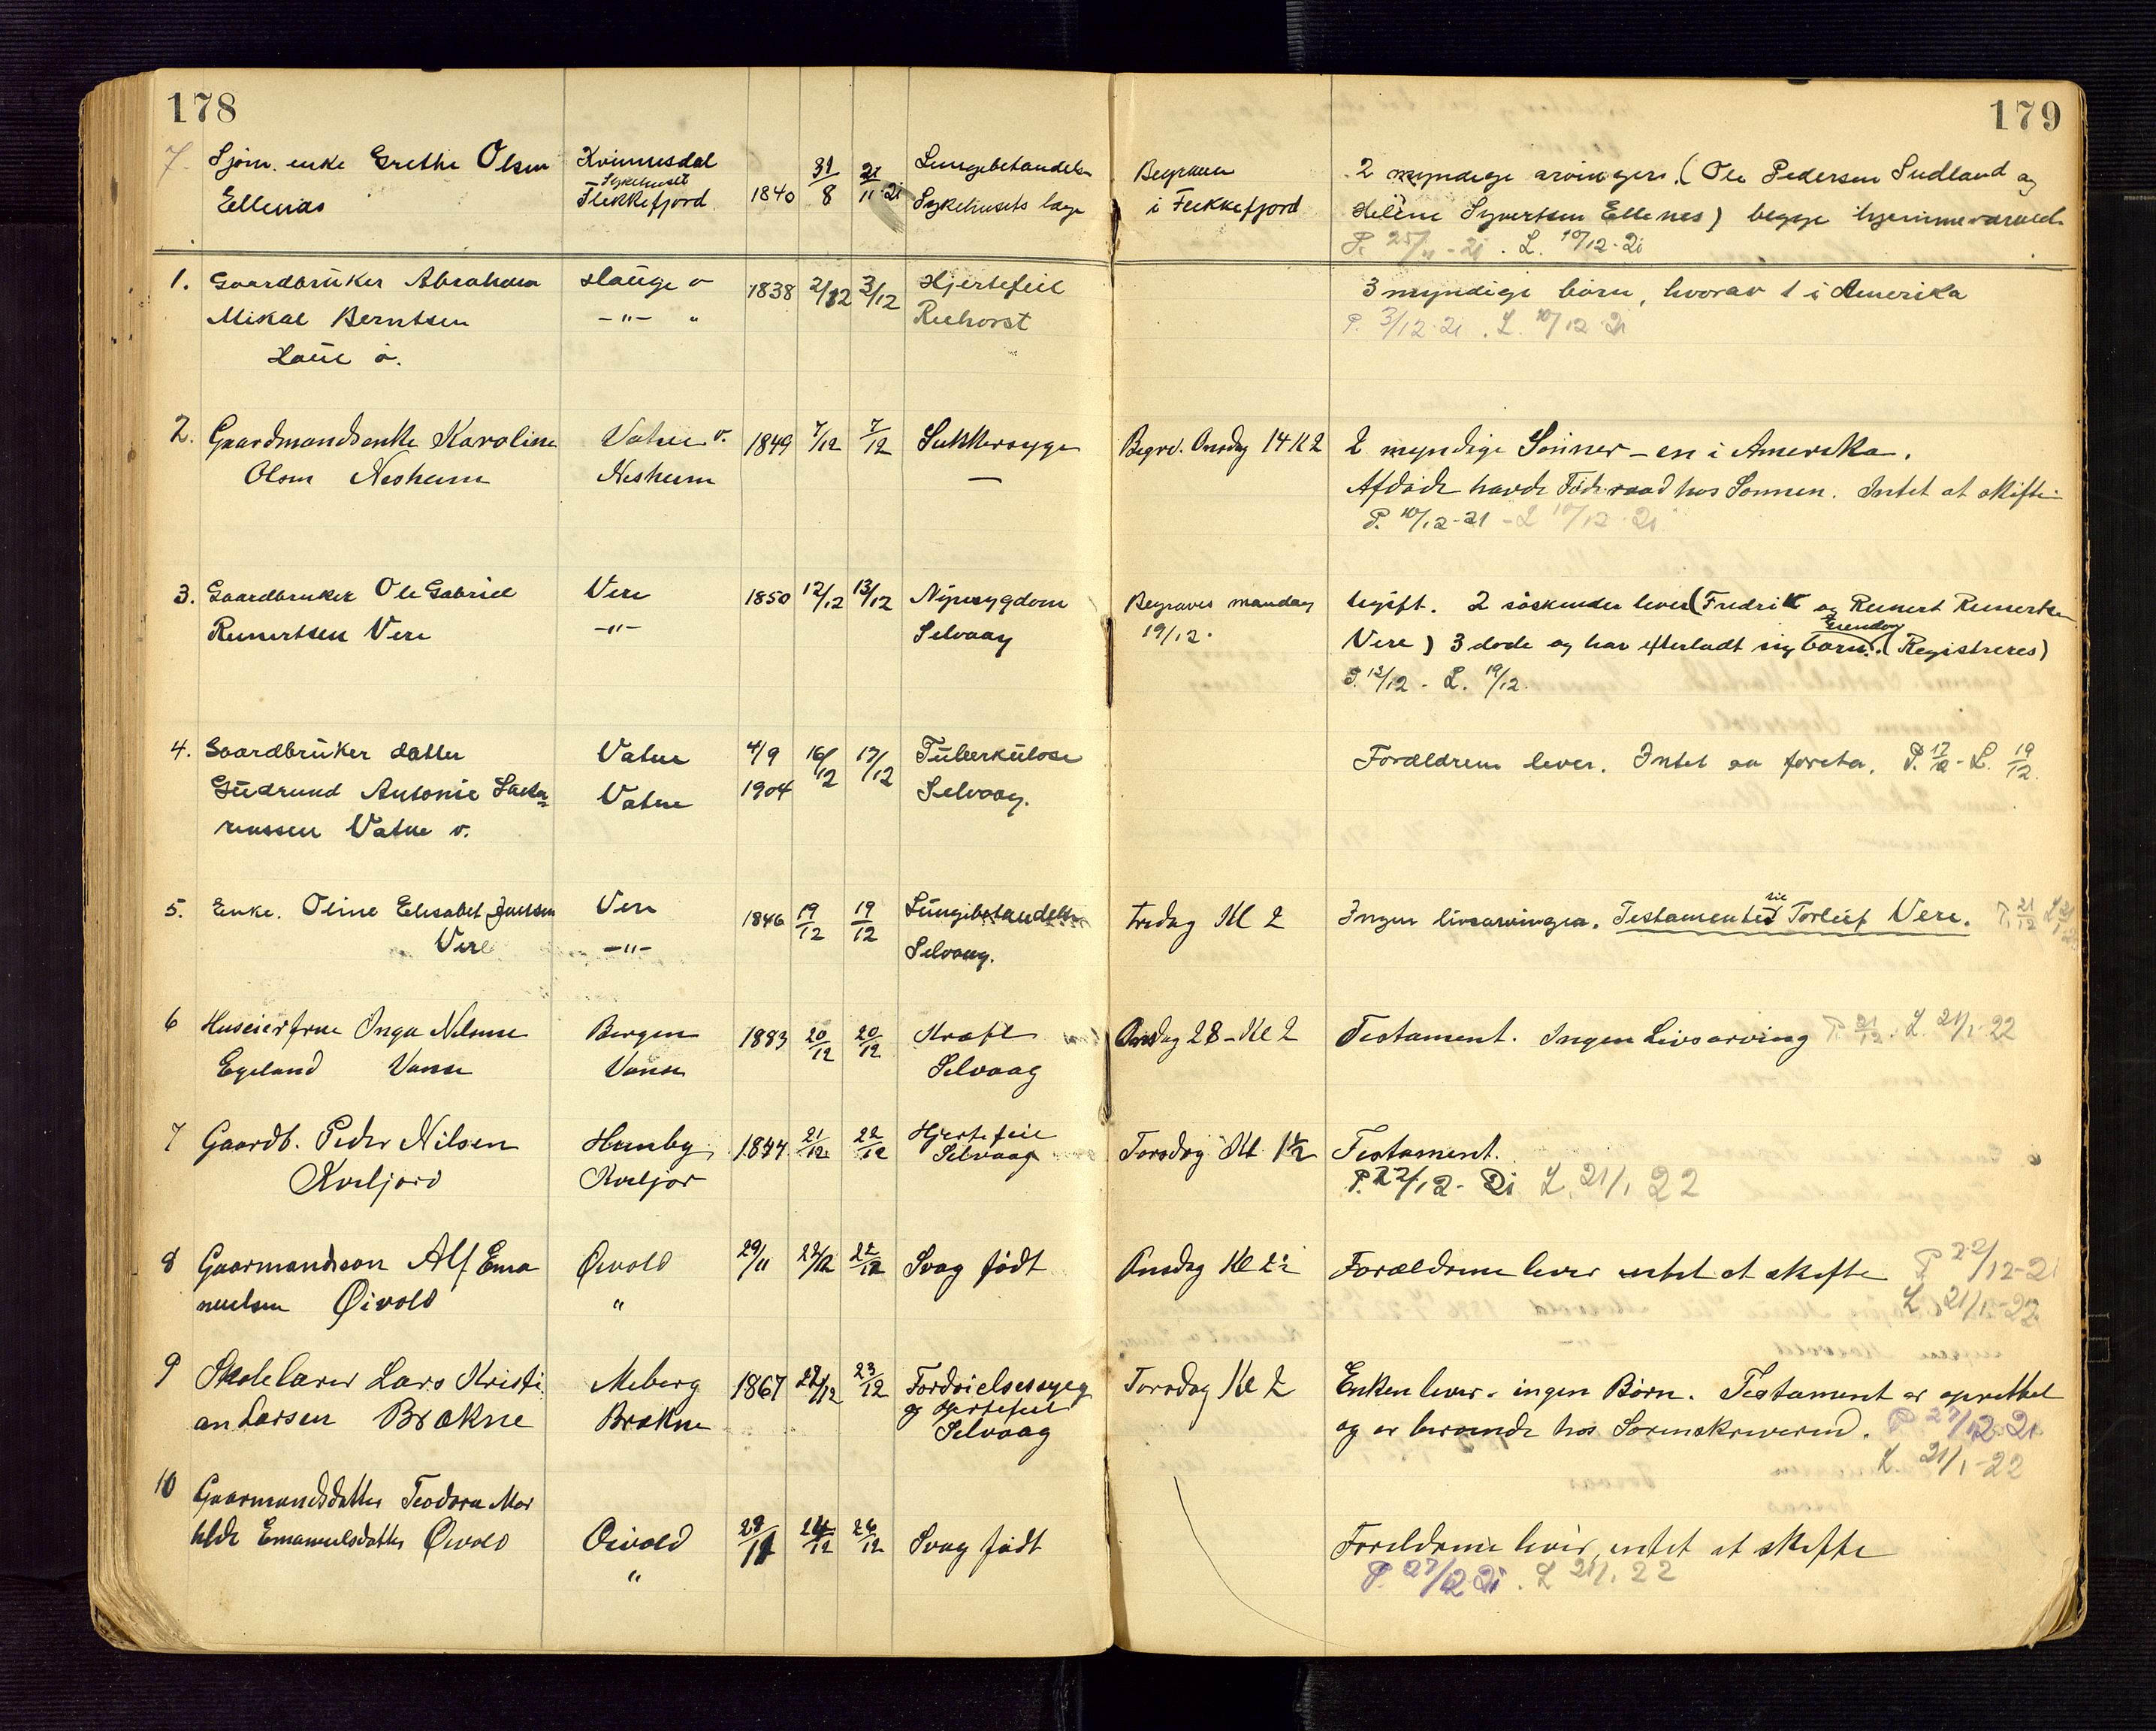 178
7. Sjøm. enke Grethe Olsen Kvinnesdal 31/8 21/11 21 Lungebetændelse
Sykehuset
Ellenæs Flekkefjord 1840 Sykehusets læge
1. Gaardbruker Abraham Hauge ø 1838 2/12 3/12 Hjertefeil
Mikal Berntsen -"- " Riehorst
Haue ø.
2. Gaardmandsenke Karoline Vatne v. 1849 7/12 7/12 Sukkersyge
Olsen Nesheim Nesheim —
3. Gaardbruker Ole Gabriel Vere 1850 12/12 13/12 Nyresygdom
Reinertsen Vere -"- Selvaag
4. Gaardbruker datter Vatne 4/9 16/12 17/12 Tüberkülose
Güdrund Antonie Vatne 1904 Selvaag.
Vatne v.
5. Enke. Oline Elisabet Vere 1846 19/12 19/12 Lüngebetændelse
Vere -"- Selvaag.
6 Huseierfrue Inga Bergen 1883 20/12 20/12 Kræft
Egeland Vanse Vanse Selvaag
7 Gaardb. Peder Nilsen 1844 21/12 22/12 Hjertefeil
Kveljord Kveljor Selvaag
8 Gaarmandsøn Alf Ema Øivold 29/11 22/12 22/12 Svag født
nuelsen Øivold "
9 Skolelærer Lars Kristi Meberg 1867 22/12 23/12 Fordøielsessyge
an Larsen Brækne Brækne og Hjertefeil
Selvaag
10 Gaarmandsdatter Teodora Mat
hilde Emanuelsdatter Øivold Øivold 29/11 24/12 26/12 Svag født
"
179
Begraves 2 myndige arvinger. (Ole Pedersen Sudland og
i Flekkefjord Helene Syvertsen Ellenes) begge hjemmeværende
P. 25/11-21. L. 10/12-21
3 myndige børn, hvorav 1 i Amerika
P. 3/12 21. L. 10/12 21
Begrv. Onsdag 14 Kl 2 2 myndige Sönner - en i Amerika.
Afdøde havde Føderaad hos Sønnen. Intet at skifte
P. 10/12-21 - L 10/12 21
Begraves mandag Ugift. 2 søskende lever (Fredrik og Reinert Reinertsen
19/12. Vere) 3 døde og har efterladt sig børn. (Registreres)
P. 13/12 - L. 19/12.
Forældrene lever. Intet at foreta. P. 17/12 - L. 19/12.
Fredag Kl 2 Ingen livsarvinger. Testamented til Torleif Vere. P. 21/12 L 21/1 22
Onsdag 28 - Kl 2 Testament. Ingen Livsarving P. 21/12. L. 21/1 22
Torsdag Kl 1½ Testament.
P. 22/12 - 21 L. 21/1 22
Onsdag Kl Forældrene lever intet at skifte P 22/12-21
L 21/1-22
Torsdag Kl 2 Enken lever - ingen Børn. Testament er oprettet
og er beroende hos Sorenskriveren. P 27/12 21
L. 21/1-22
Foreldrene lever, intet at skifte
P. 27/12 21. L 21/1 22